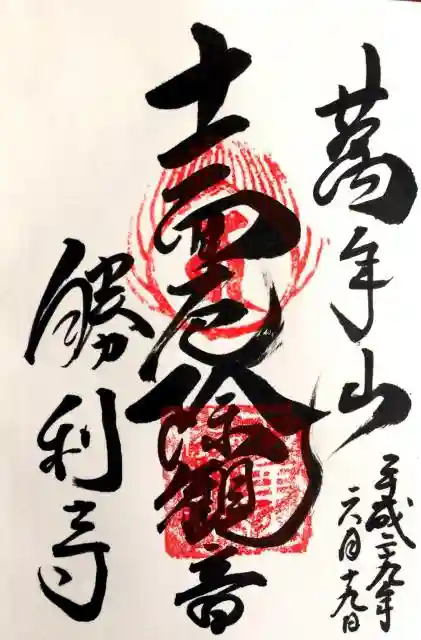 萬年山
平成二九年
六月十九日
十一面厄除観音
勝利寺